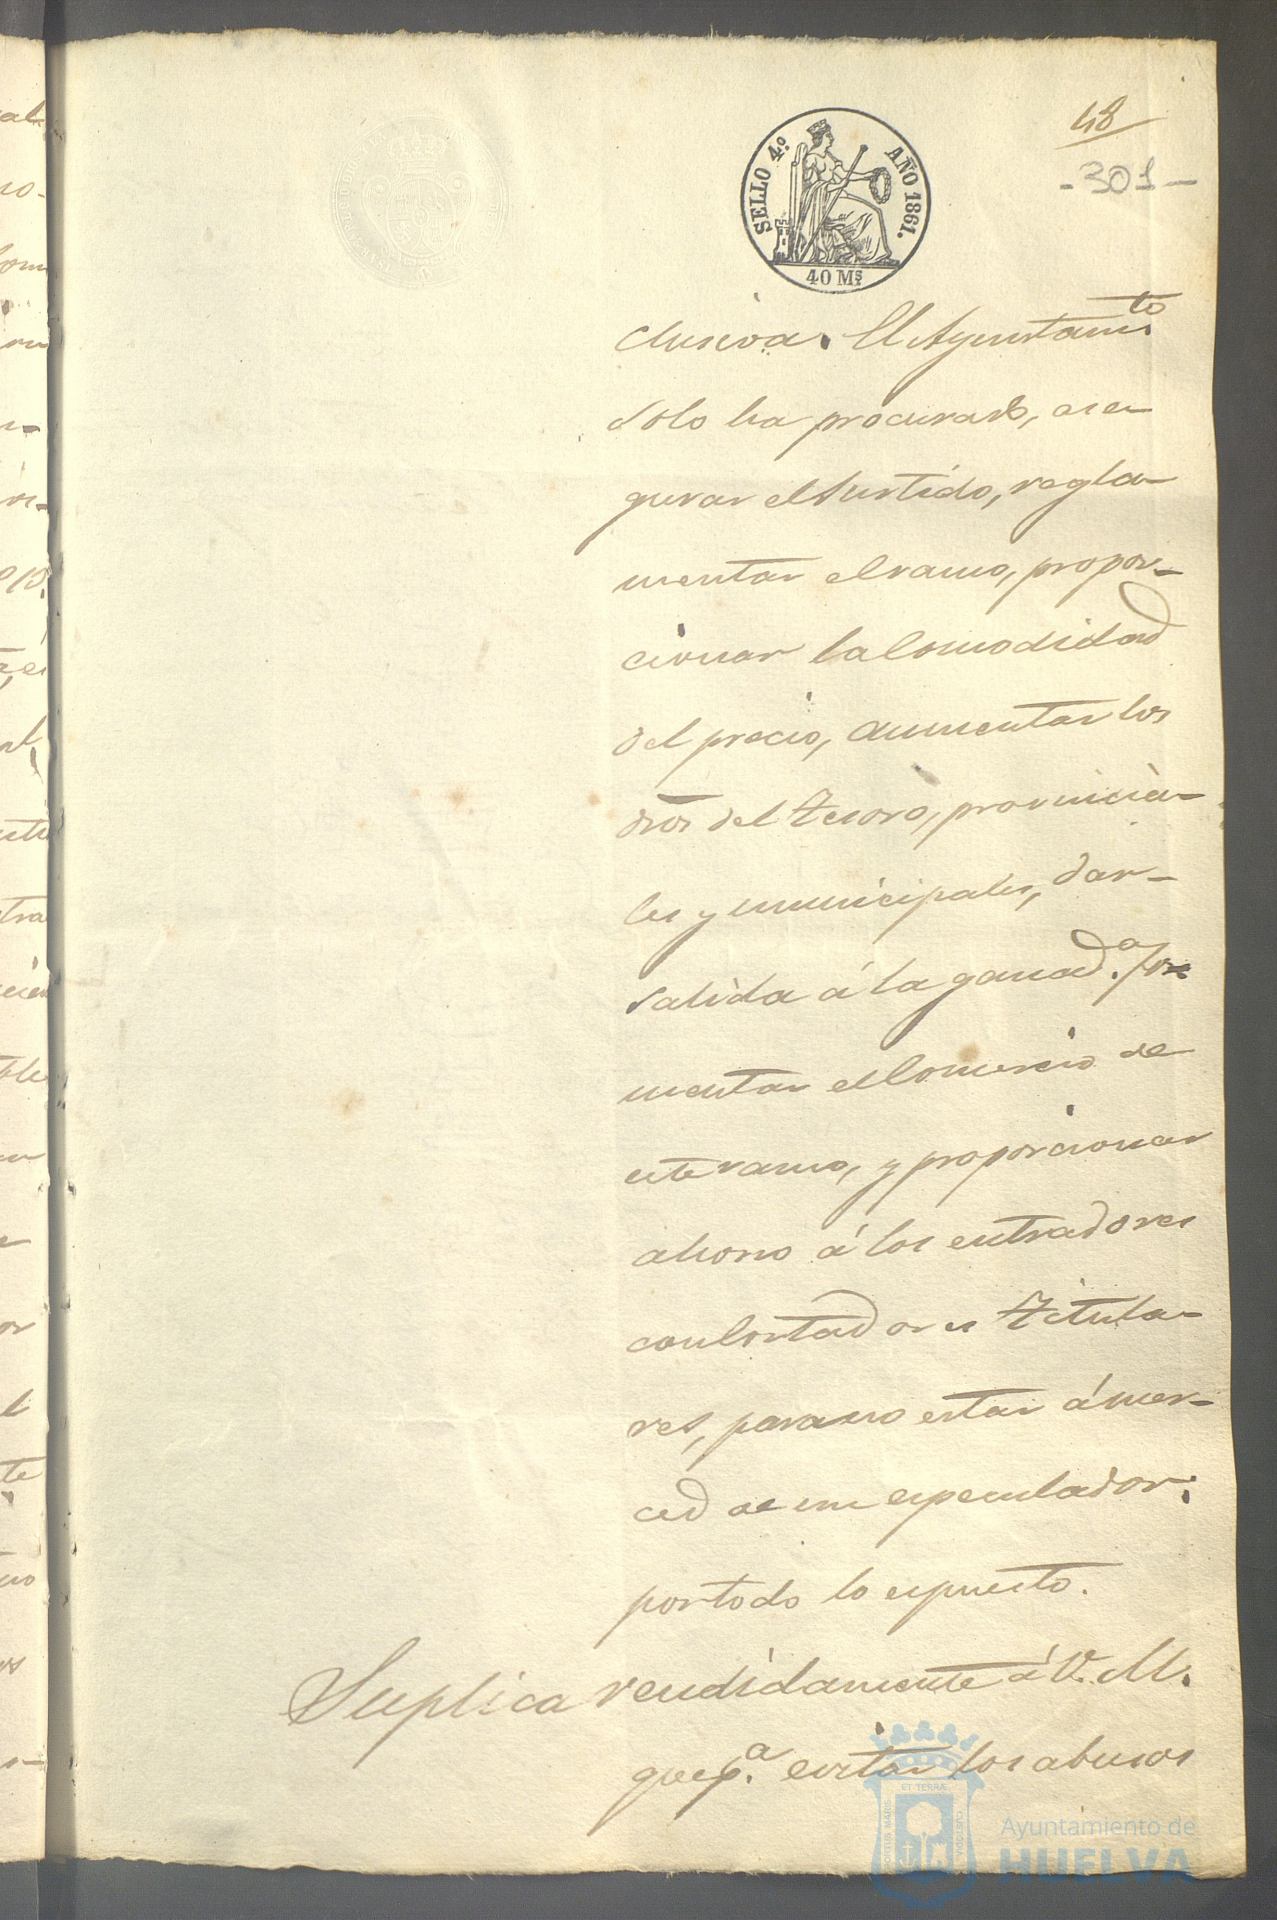 48
-301-
SELLO 4.º AÑO 1861.
40 Ms
clusiva. El Ayuntam.to
solo ha procurado, ase-
gurar el surtido, regla-
mentar el ramo, propor-
cionar la Comodidad
del precio, aumentar los
dros del Tesoro, provincia-
les y municipales, dar
salida á la ganad.a fo
mentar el Comercio de
este ramo, y proporcionar
ahorro á los entradores
con Cortadores Titula-
res, para no estar á mer-
ced de un especulador:
por todo lo espuesto.
Suplica rendidamente á V. M.
que p.a evitar los abusos
PORTUS MARIS ET TERRÆ CUSTODIA
Ayuntamiento de
HUELVA